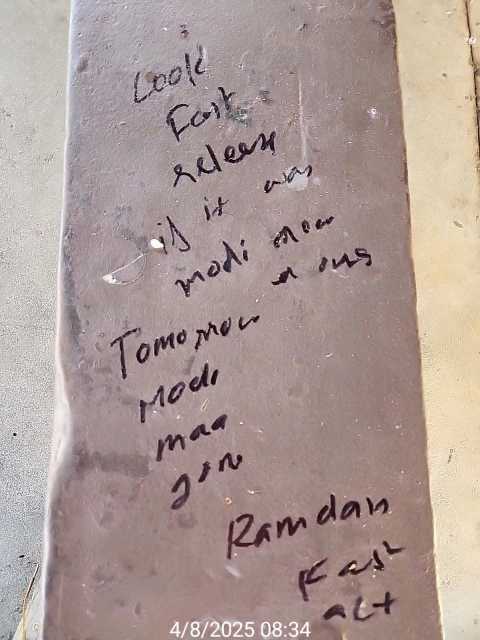 Look
Fast
release
if it was
modi
Tomorrow
Modi
maa
Ramdan
Fast
act
4/8/2025 08:34